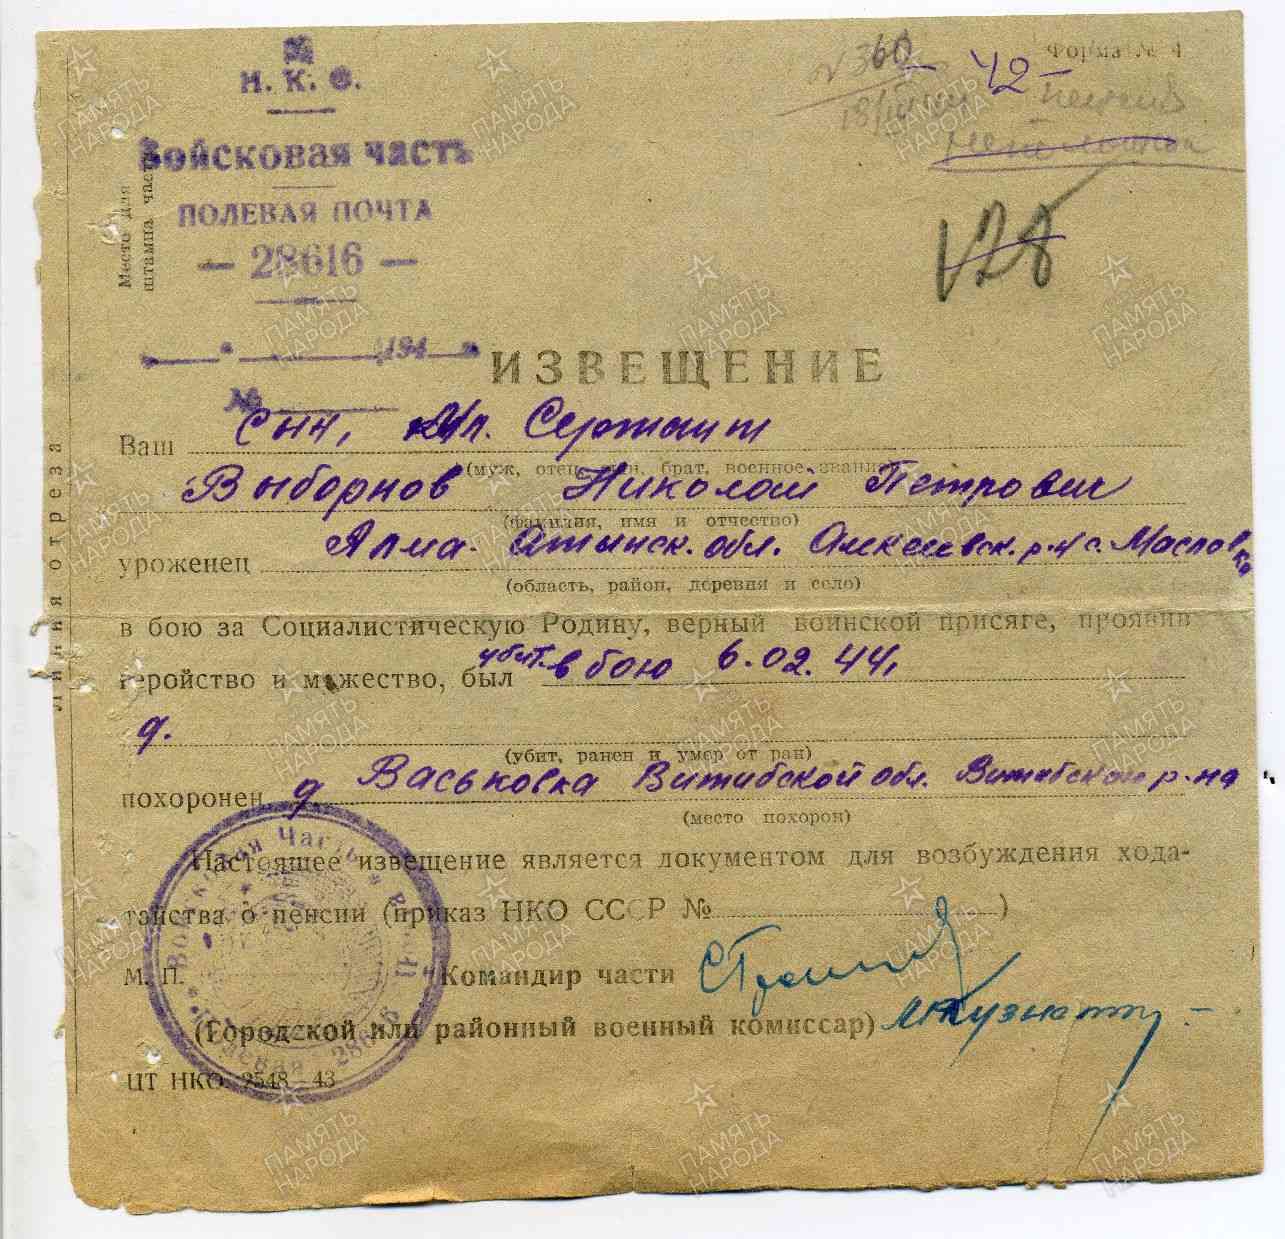 Н. К. О.
Войсковая часть
ПОЛЕВАЯ ПОЧТА
— 28616 —
„ “ 194
№
Место для
штампа части
Форма № 4
№ 360 - 42 -
18/IV
128
ИЗВЕЩЕНИЕ
Ваш сын, мл. Сержант
(муж, отец, сын, брат, военное звание)
Выборнов Николай Петрович
(фамилия, имя и отчество)
уроженец Алма-Атинск. обл. Алексеевск. р-н с. Масловка
(область, район, деревня и село)
в бою за Социалистическую Родину, верный воинской присяге, проявив
геройство и мужество, был убит. в бою 6.02.44,
д.
(убит, ранен и умер от ран)
похоронен д Васьковка Витибской обл. Витебского р-на
(место похорон)
Настоящее извещение является документом для возбуждения хода-
тайства о пенсии (приказ НКО СССР № )
М. П. Командир части
(Городской или районный военный комиссар)
ЦТ НКО. 2548—43
Линия отреза
Войсковая Часть
28616
ПАМЯТЬ
НАРОДА